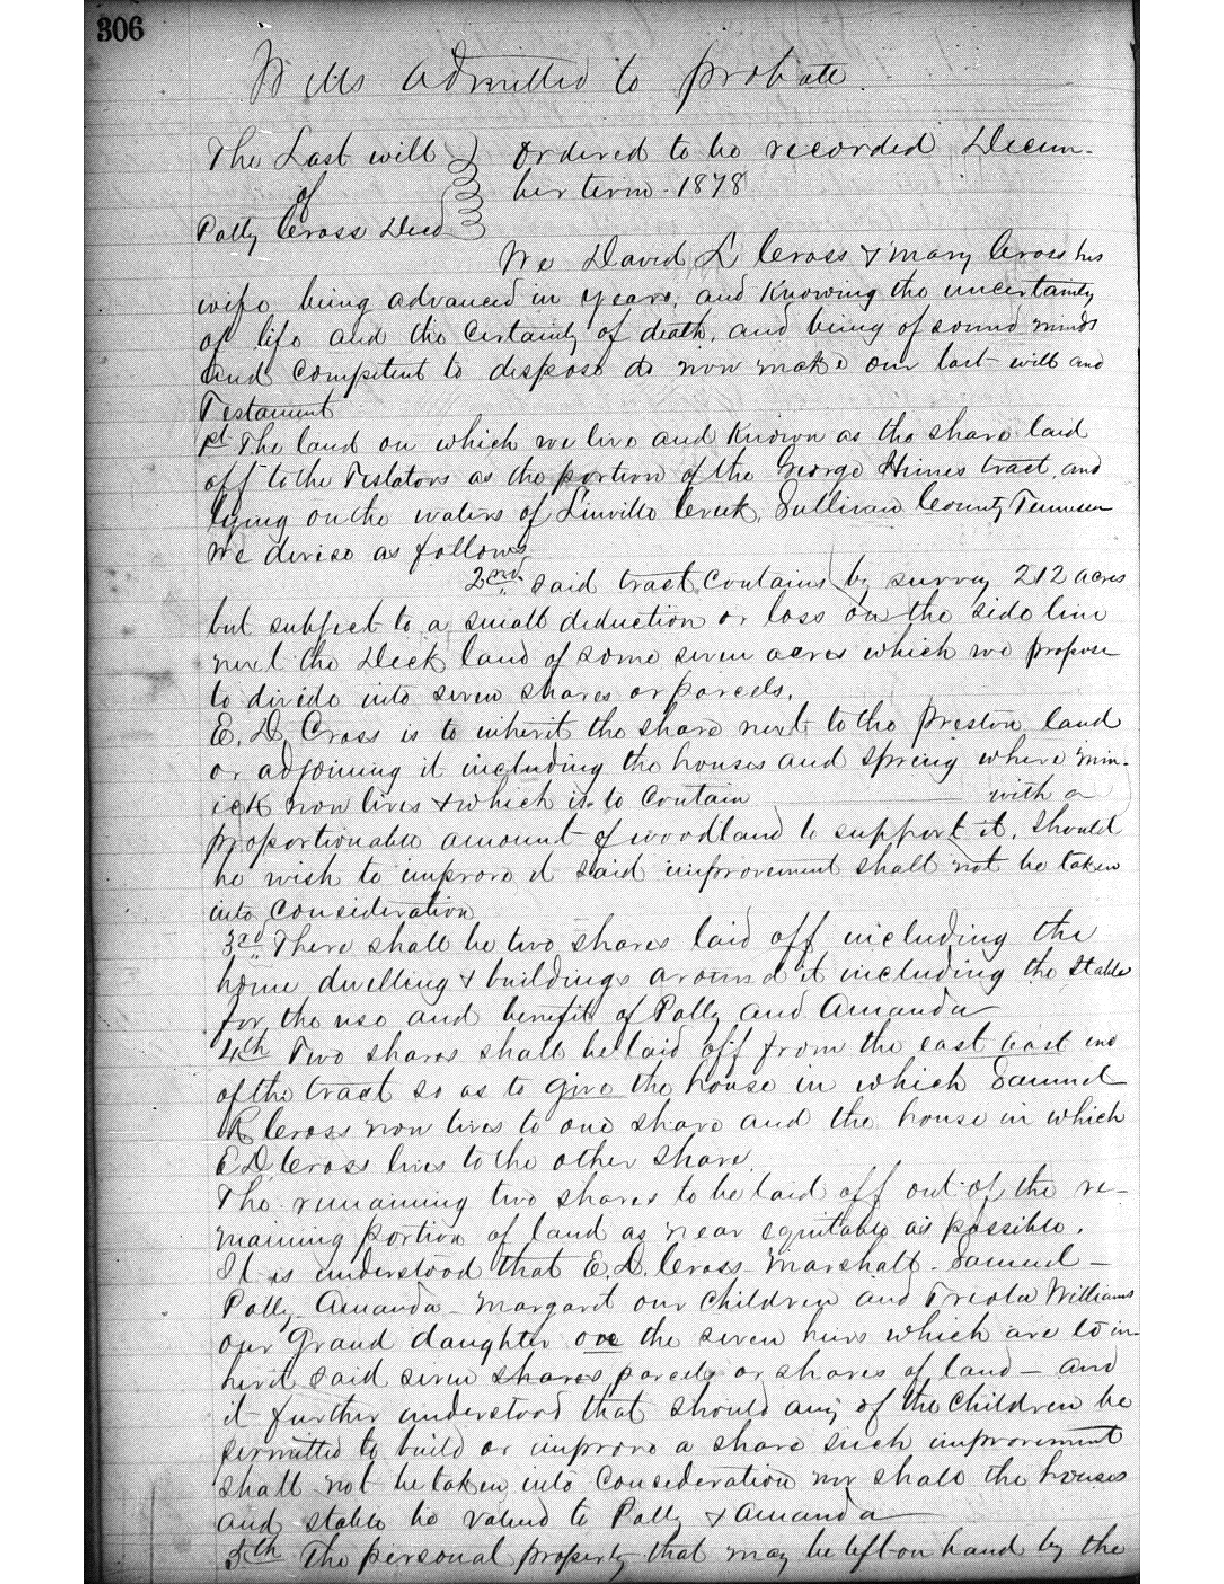 306
Wills admitted to probate.
The Last will
of
Polly Cross Decd
Ordered to be recorded Decem-
ber term - 1878
We David L Cross & Mary Cross his
wife being advanced in years, and knowing the uncertainty
of life and the certainty of death, and being of sound minds
and competent to dispose do now make our last will and
Testament
1st The land on which we live and known as the share laid
off to the Testators as the portion of the George Himes tract, and
lying on the waters of Linville Creek, Sullivan County, Tennessee
We devise as follows
2nd Said tract contains by survey 212 acres
but subject to a small deduction or loss on the side line
next the Deck land of some seven acres which we propose
to divide into seven shares or parcels.
E. D. Cross is to inherit the share next to the Preston land
or adjoining it including the houses and spring where Min-
ick now lives & which is to contain with a
proportionable amount of woodland to support it. Should
he wish to improve it said improvement shall not be taken
into consideration
3rd There shall be two shares laid off including the
home dwelling & buildings around it including the stable
for the use and benefit of Polly and Amanda
4th Two shares shall be laid off from the east east end
of the tract so as to give the house in which Samuel
R Cross now lives to one share and the house in which
E D Cross lives to the other share.
The remaining two shares to be laid off out of the re-
maining portion of land as near equitable as possible.
It is understood that E. D. Cross - Marshall - Samuel -
Polly - Amanda - Margaret our children and Williams
our Grand daughter are the seven heirs which are to in-
herit said seven shares parcels or shares of land - and
it further understood that should any of the children be
permitted to build or improve a share such improvement
shall not be taken into consideration nor shall the houses
and stable be valued to Polly & Amanda
5th The personal property that may be left on hand by the